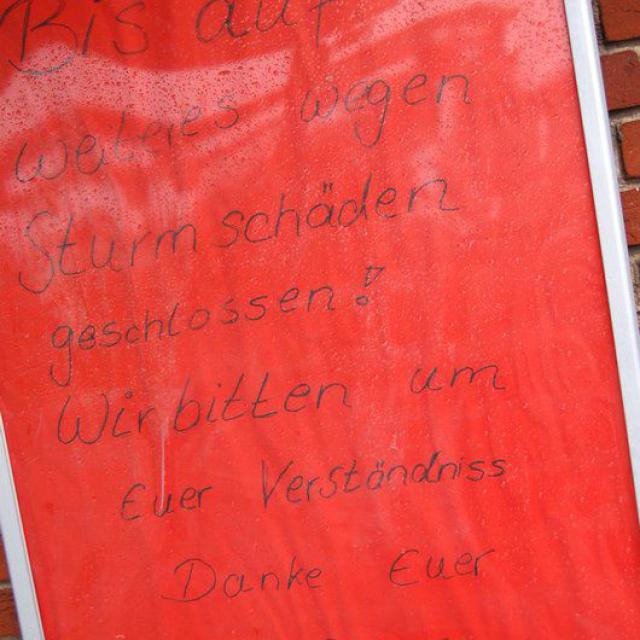 Bis auf
weiteres wegen
Sturmschäden
geschlossen!
Wir bitten um
Euer Verständniss
Danke Euer